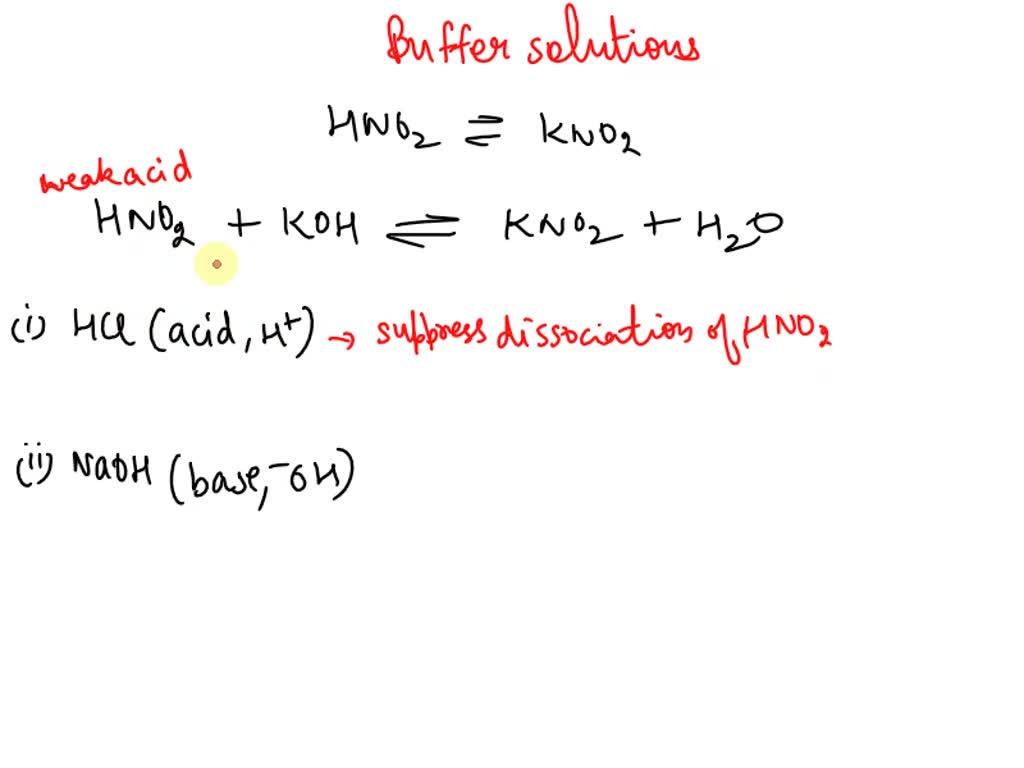 Buffer solutions
HNO₂ ⇌ KNO₂
weak acid
HNO₂ + KOH ⇌ KNO₂ + H₂O
(i) HCl (acid, H⁺) → suppress dissociation of HNO₂
(ii) NaOH (base, ⁻OH)